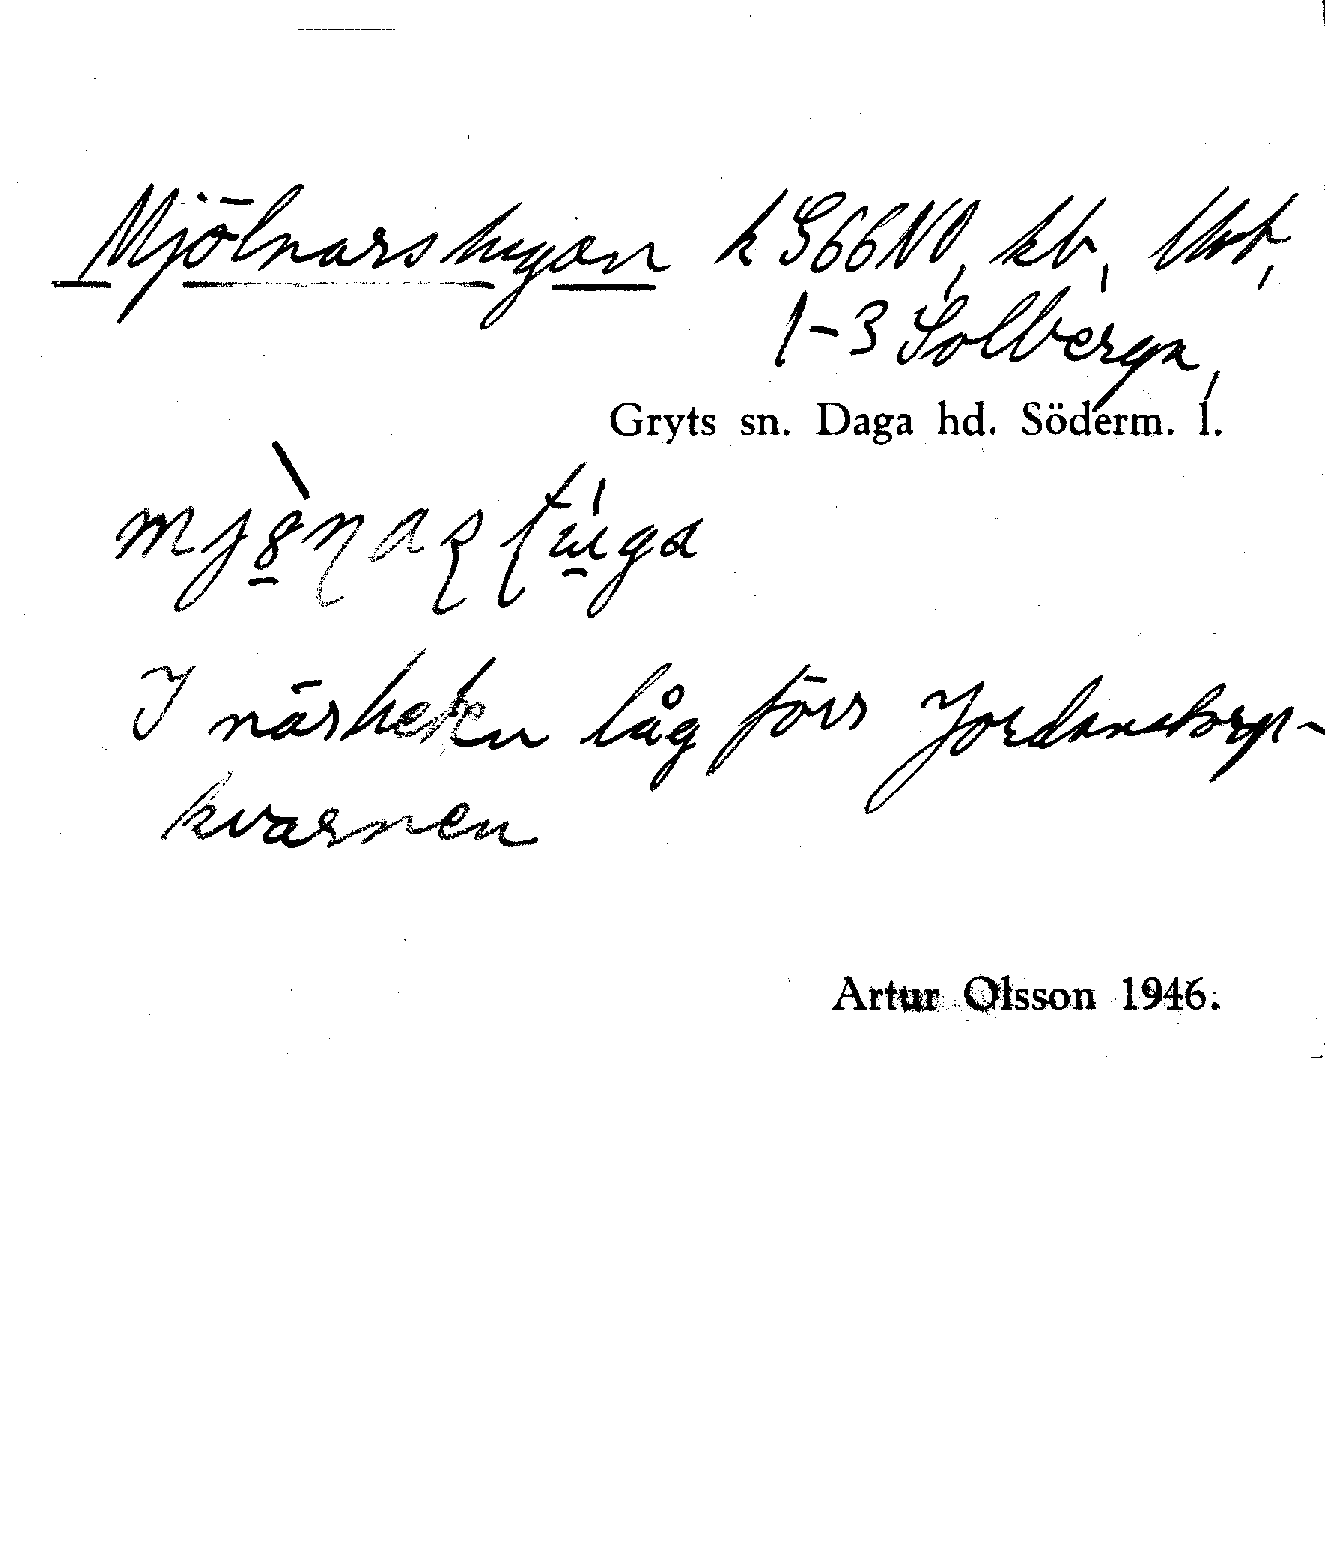 Mjölnarstugan k S66NO, kb, Ubt,
1-3 Solberga,
Gryts sn. Daga hd. Söderm. l.
I närheten låg förr Jordanstorps-
kvarnen
Artur Olsson 1946.